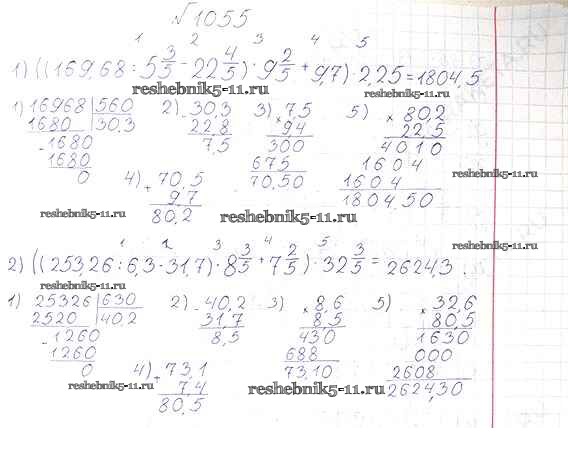 √1055
1 2 3 4 5
1) ((169,68 : 5 3/5 - 22 4/5) · 9 2/5 + 9,7) · 2,25 = 1804,5
reshebnik5-11.ru reshebnik5-11.ru
1) 16968 | 560 2) - 30,3 3) × 7,5 5) × 80,2
1680 | 30,3 22,8 9,4 22,5
- 1680 7,5 300 4010
1680 675 1604
0 4) + 70,5 70,50 1604
9,7 1804,50
80,2
reshebnik5-11.ru reshebnik5-11.ru reshebnik5-11.ru
1 2 3 4 5
2) ((253,26 : 6,3 - 31,7) · 8 3/5 + 7 2/5) · 32 3/5 = 2624,3.
1) 25326 | 630 2) - 40,2 3) × 8,6 5) × 32,6
2520 | 40,2 31,7 8,5 80,5
- 1260 8,5 430 1630
1260 688 000
0 4) + 73,1 73,10 2608
7,4 2624,30
80,5
reshebnik5-11.ru reshebnik5-11.ru reshebnik5-11.ru